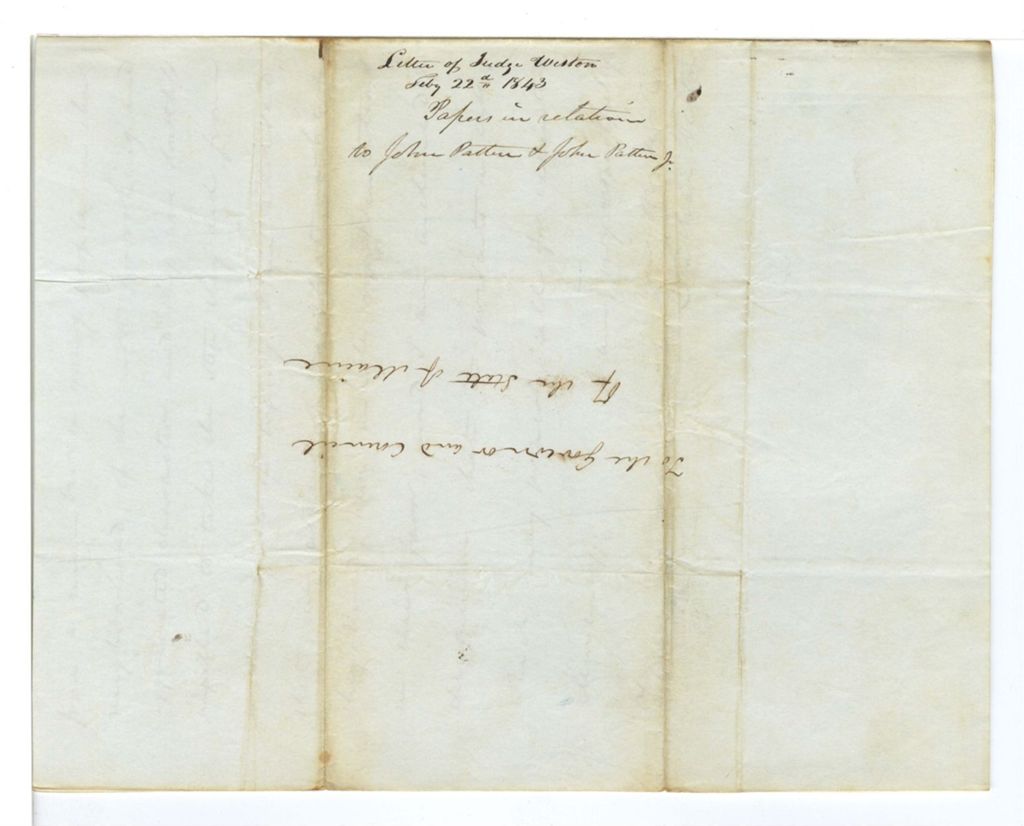 Letter of Judge Weston
Feby 22d 1843
Papers in relation
to John Patten & John Patten Jr.
To the Governor and Council
Of the State of Maine